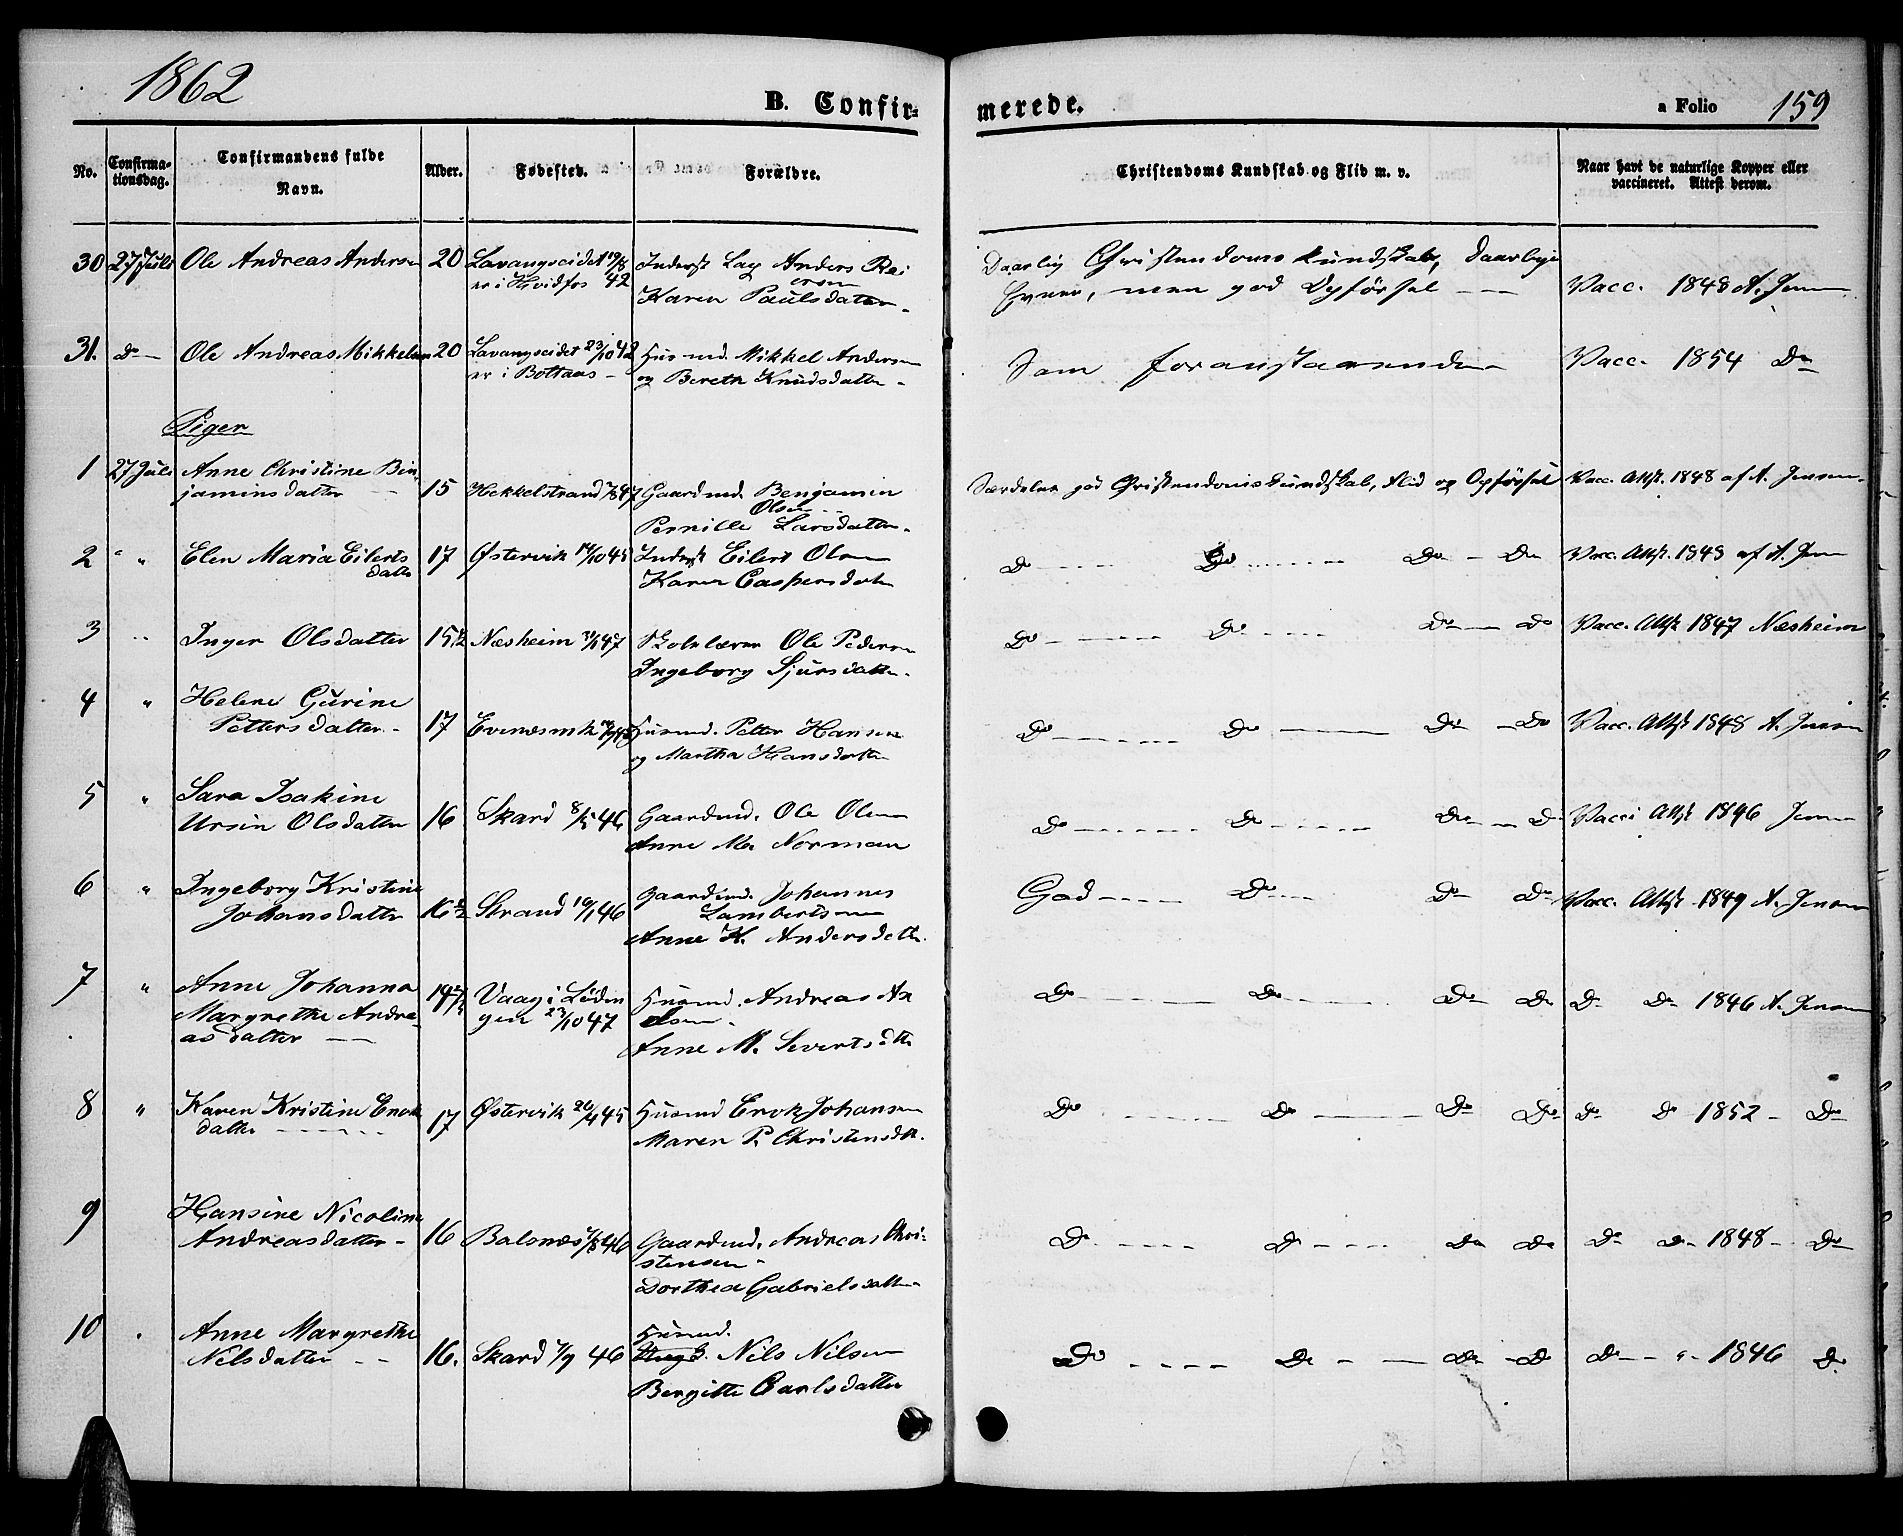 1862
B. Confir-
merede.
a Folio 159
No. Confirmationsdag. Confirmandens fulde Navn. Alder. Fødested. Forældre. Christendoms Kundskab og Flid m. v. Naar havt de naturlige Kopper eller vaccineret. Attest derom.
30 27 Juli Ole Andreas Andersen 20 Lavangseidet Inderst Lap Anders Rei Daarlig Christendomskundskab, daarlige
er i Hvidfos 42 ersen
Karen Paulsdatter Evner, men god Opførsel Vacc. 1848 A. Jensen
31. Do Ole Andreas Mikkelsen 20 Lavangseidet 23/10 42 Husmd. Mikkel Andersen Som foranstaaende Vacc. 1854 Do
er i Bottnes og Bereth Knudsdatter
Piger
1 27 Juli Anne Christine Ben-
jaminsdatter 15 Hekkelstrand 47 Gaardmd. Benjamin Særdeles god Christendomskundskab, Flid og Opførsel Vacc. Attst. 1848 af A. Jensen
Olsen
Pernille Larsdatter
2 " " Elen Maria Eilerts 17 Østervik 14/10 45 Inderst Eilert Olsen Do Do Do Do Vacc. Attst. 1848 af A. Jensen
datter Karen Caspersdatter
3 " Inger Olsdatter 15 1/2 Næsheim 47 Skolelærer Ole Pedersen Do Do Do Do Vacc. Attst 1847 Næsheim
Ingeborg Sjursdatter
4 " Helene Gurine
Pettersdatter 17 Evenæsmk 45 Husmd. Petter Hansen Do Do Do Do Vacc. Attst 1848 A. Jensen
og Martha Hansdatter
5 " Sara Isakine
Ursin Olsdatter 16 Skard 8/5 46 Gaardmd. Ole Olsen Do Do Do Do Vacci Attst 1846 Jensen
Anne M. Norman
6 " Ingeborg Kristine Gaardmd. Johannes God Do Do Do Vacc. Attst 1849 A. Jensen
Johansdatter 16 1/2 Strand 10/1 46 Lambertsen
Anne K. Andersdatter
7 " Anne Johanna Vaag i Lødin Husmd. Andreas Ax Do Do Do Do Do Do 1846 A. Jensen
Margrethe Andre- gen 23/10 47 elsen
asdatter Anne M. Sivertsdtt
8 " Karen Kristine Enok 17 Østervik 26/4 45 Husmd Enok Johansen Do Do Do Do Do Do 1852 Do
datter Maren P. Christensdtt.
9 Hansine Nicoline
Andreasdatter 16 Balsnæs 46 Gaardmd. Andreas Chri- Do Do Do Do Do Do 1848 Do
stensen
Dorthea Gabrielsdatter
10 Anne Margrethe Husmd.
Nelsdatter 16. Skard 7/9 46 Nils Nilsen Do Do Do Do Do " 1846 Do
Bergitte Carlsdatter